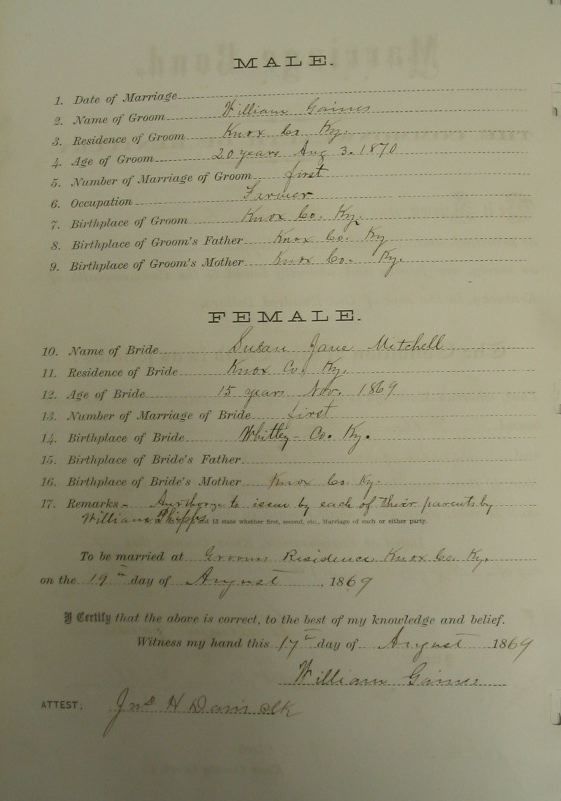 MALE.
1. Date of Marriage
2. Name of Groom William Gaines
3. Residence of Groom Knox Co. Ky.
4. Age of Groom 20 years Aug 3. 1870
5. Number of Marriage of Groom first
6. Occupation Farmer
7. Birthplace of Groom Knox Co. Ky.
8. Birthplace of Groom's Father Knox Co. Ky
9. Birthplace of Groom's Mother Knox Co. Ky.
FEMALE.
10. Name of Bride Susan Jane Mitchell
11. Residence of Bride Knox Co. Ky.
12. Age of Bride 15 years Nov. 1869
13. Number of Marriage of Bride first
14. Birthplace of Bride Whitley Co. Ky.
15. Birthplace of Bride's Father
16. Birthplace of Bride's Mother Knox Co. Ky.
17. Remarks to issue by each of their parents by
William Phipps 13 state whether first, second, etc., Marriage of each or either party.
To be married at Grooms Residence Knox Co. Ky.
on the 19th day of August 1869
I Certify that the above is correct, to the best of my knowledge and belief.
Witness my hand this 17th day of August 1869
William Gaines
ATTEST: Jno H Davis clk